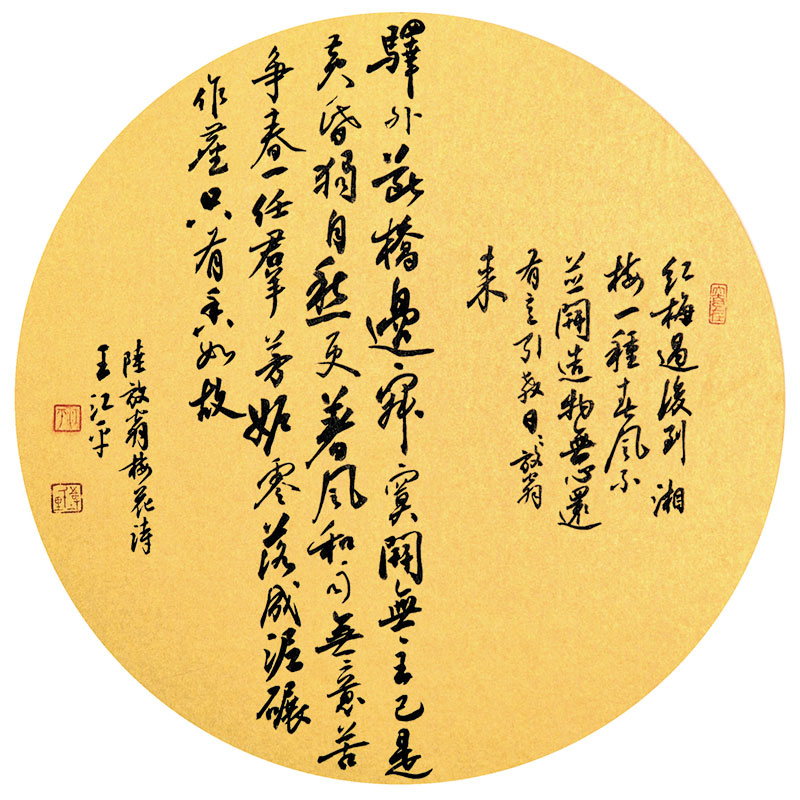 红梅過後到湘
梅一種春風不
並開造物無心還
有意引教日日放翁
来
驛外斷橋邊寂寞開無主已是
黄昏獨自愁更著風和雨無意苦
争春一任群芳妬零落成泥碾
作塵只有香如故
陸放翁梅花诗
王江平